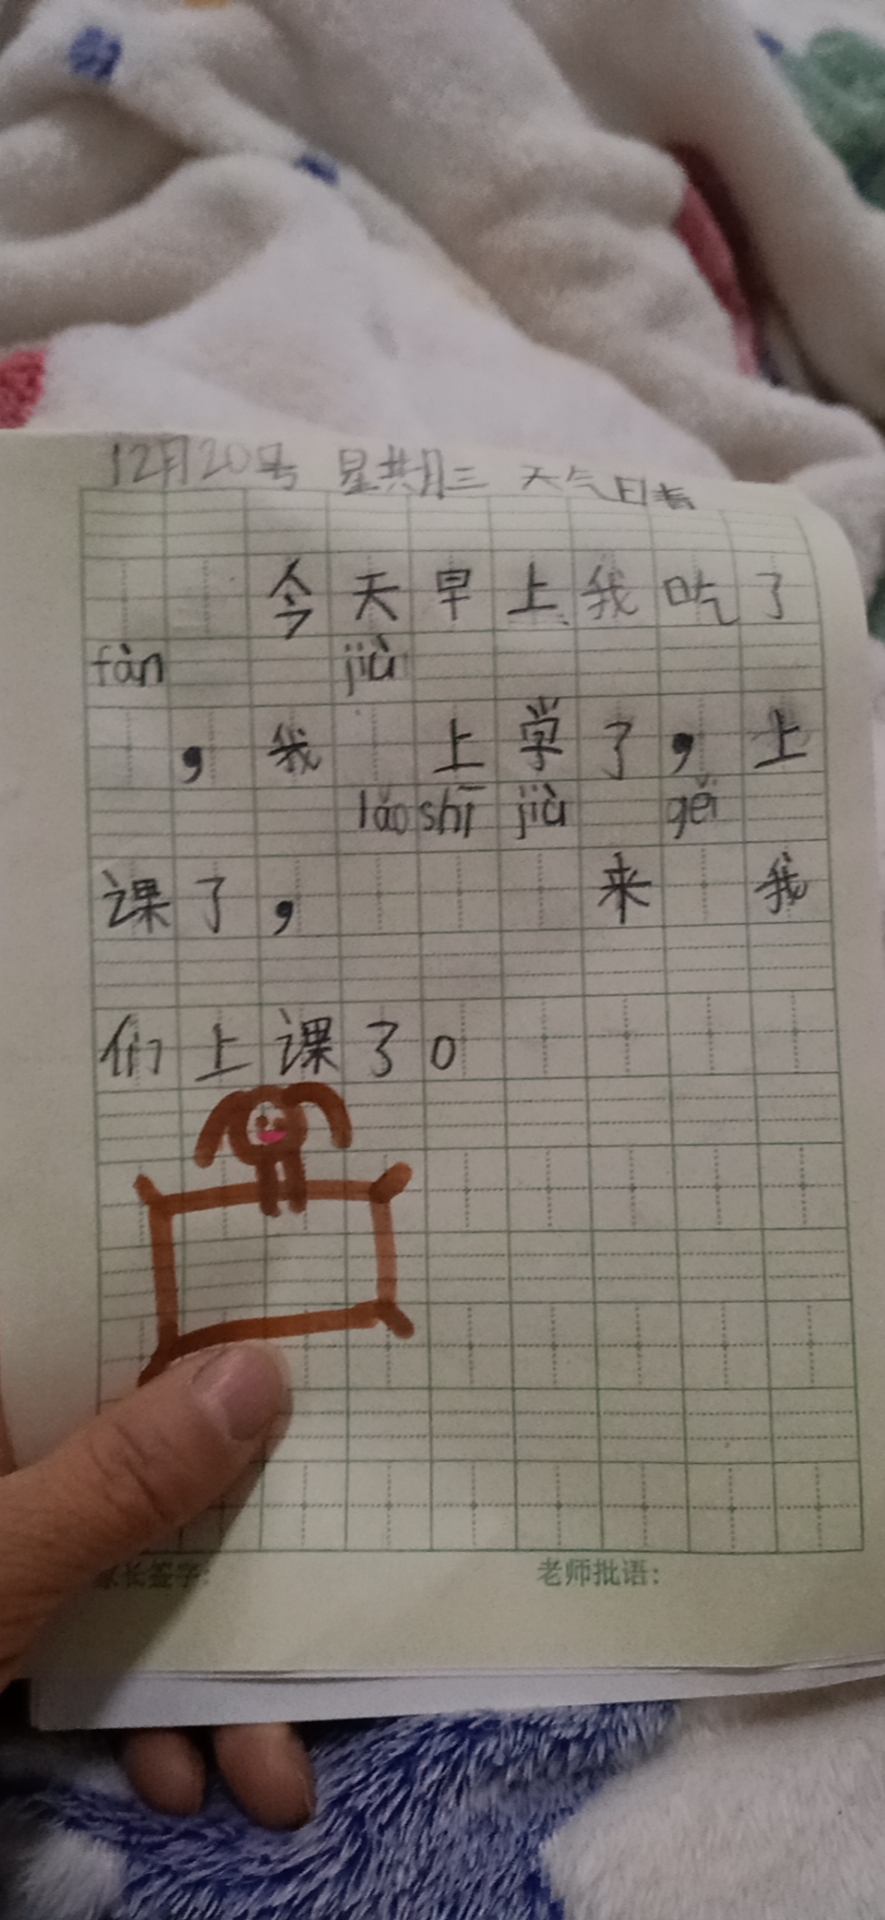 12月20号 星期三 天气日青
今天早上我吃了
fàn jiù
，我 上学了，上
lǎo shī jiù gěi
课了， 来 我
们上课了。
家长签字： 老师批语：